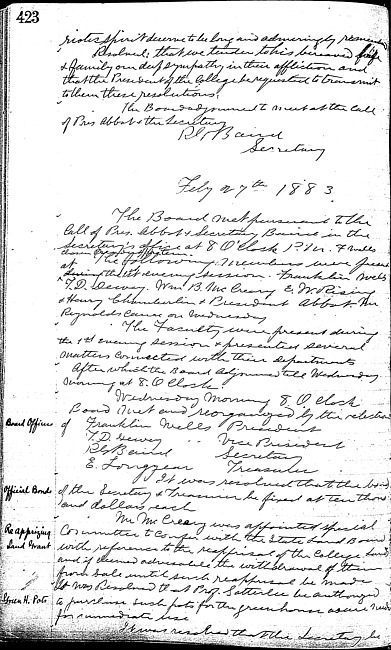 423
riotic spirit deserve to be long and admiringly
Resolved; that we tender to his bereaved
& family our deep sympathy in their affliction and
that the President of the College be requested to transmit
to them these resolutions.
The Board adjourned to meet at the Call
of Pres Abbot & the Secretary
R G Baird
Secretary
Feby 27th 1883
The Board met pursuant to the
Call of Pres. Abbot & Secretary Baird in the
Secretary's office at 8 O'Clock P.M.
The following members were present
at during the 1st evening session. Franklin Wells
T. D. Dewey. Wm B. McCreary E. W. Rising
& Henry Chamberlin & President Abbot. Mr
Reynolds came on Wednesday
The Faculty were present during
the 1st evening session & presented several
matters connected with their departments
After which the Board Adjourned till Wednesday
morning at 8. O Clock.
Wednesday Morning 8 O'Clock
Board met and reorganized by the election
Board Officers
of Franklin Wells President
T. D. Dewey " Vice President
R G Baird Secretary
E. Longyear Treasurer
It was resolved that the bond
Official Bonds
of the Secretary & Treasurer be fixed at ten thous
and dollars each
Mr McCreary was appointed special
Re appraising Land Grant
Committee to confer with the State Land Board
with reference to the reappraisal of the College Land
and if deemed advisable the withdrawal of them
from sale until such reappraisal be made
It was Resolved that Prof. Satterlee be authorized
Green H. Pots
to purchase such pots for the greenhouse as are needed
for immediate use
It was resolved that the Secretary be